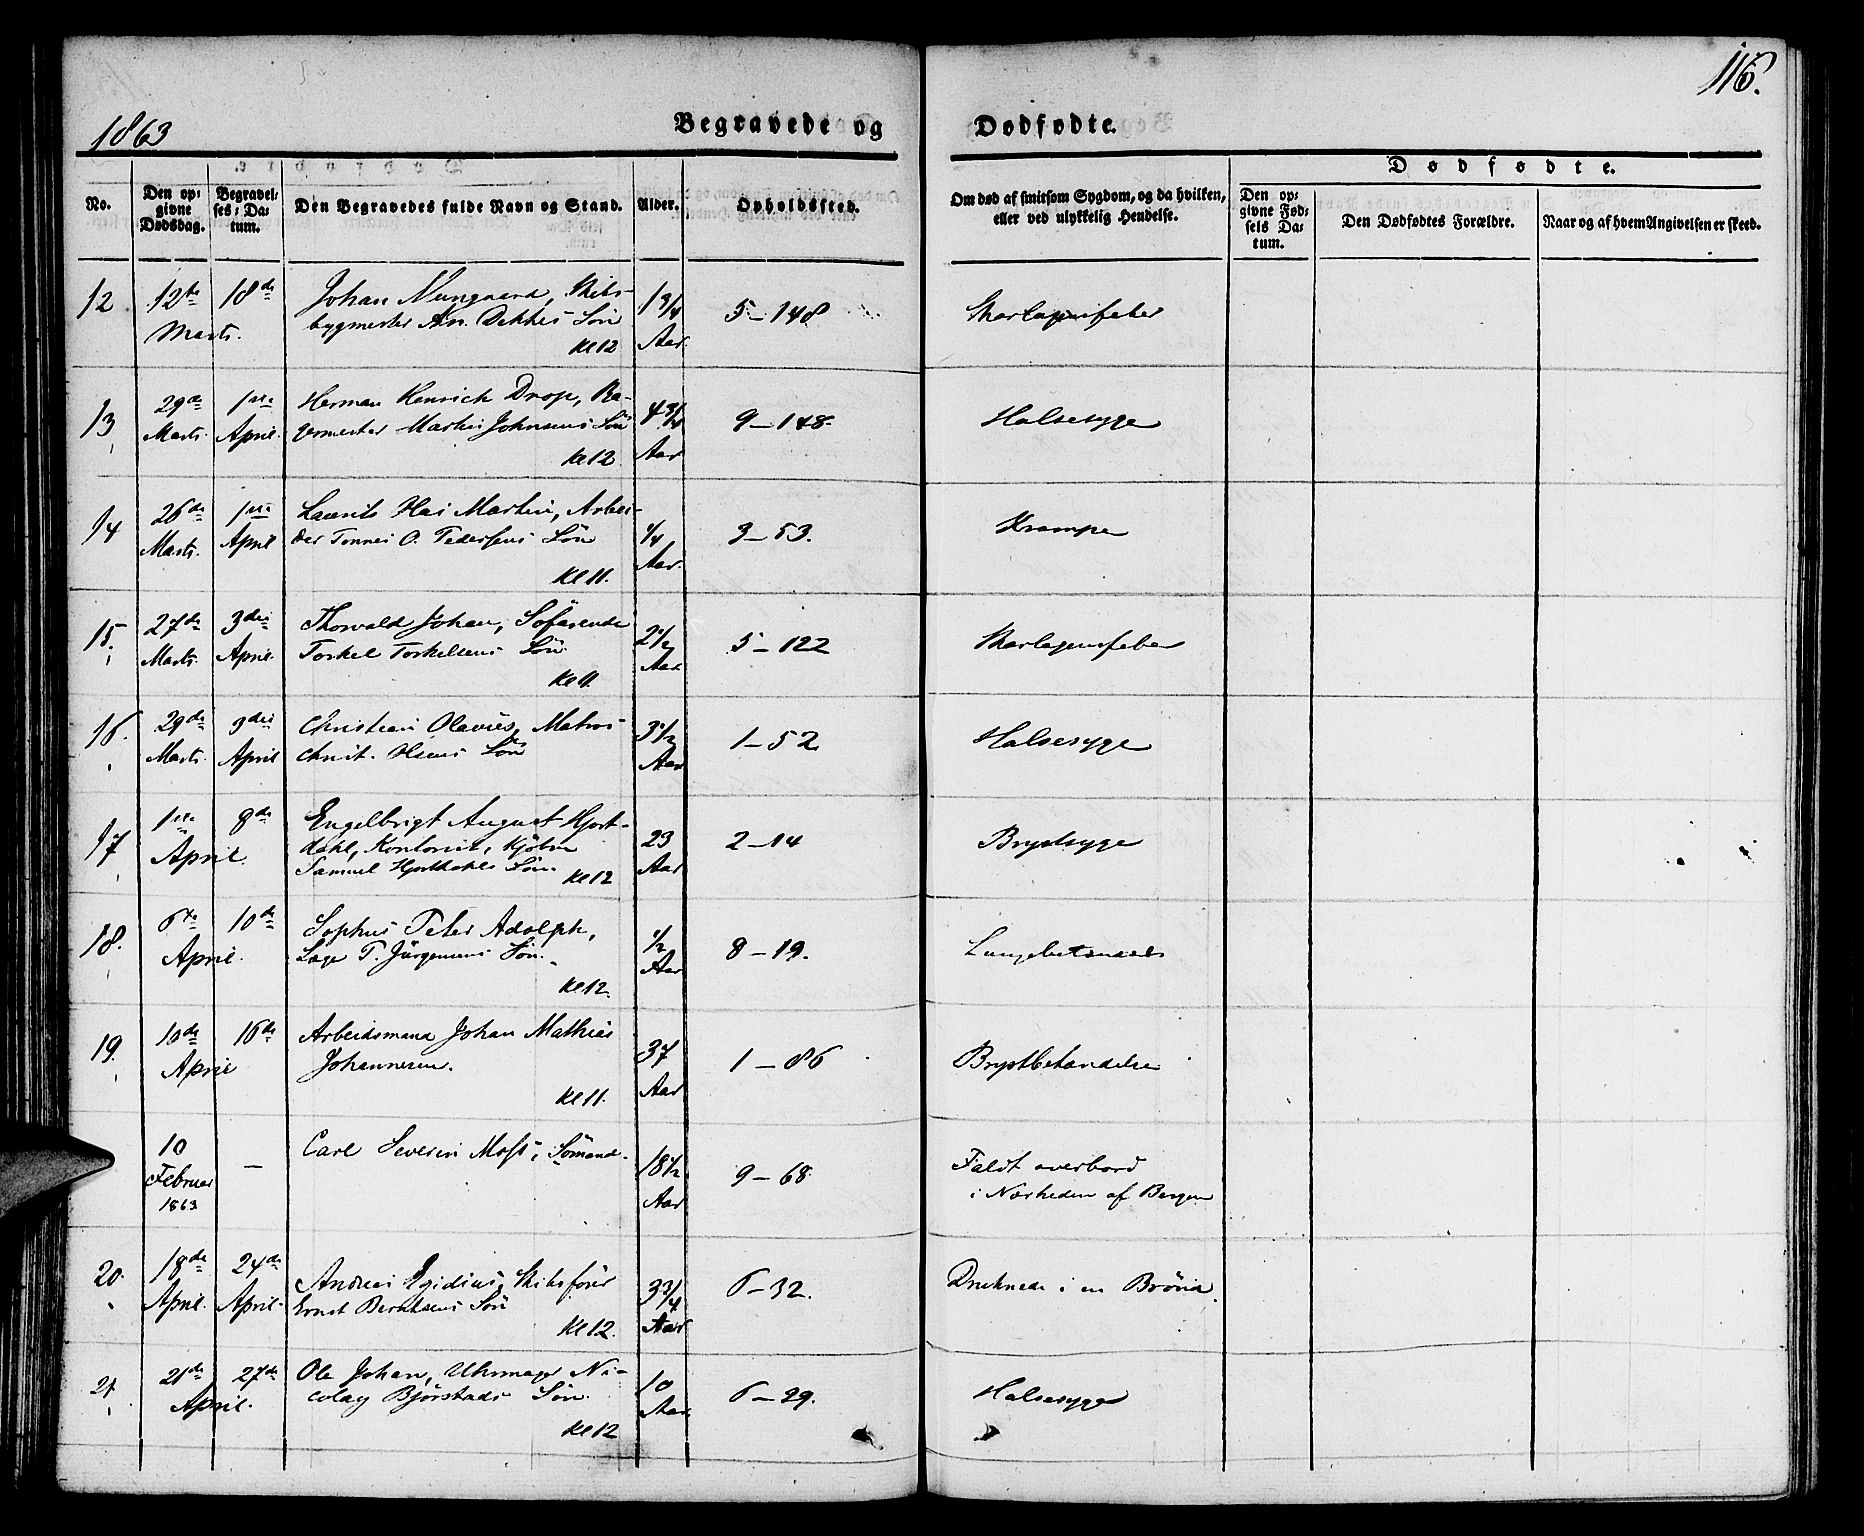 116.
1863
Begravede og Dødfødte.
Dødfødte.
No.
Den opgivne Dødsdag.
Begravelses-Datum.
Den Begravedes fulde Navn og Stand.
Alder.
Opholdssted.
Om død af smitsom Sygdom, og da hvilken, eller ved ulykkelig Hendelse.
Den opgivne Fødsels Datum.
Den Dødfødtes Forældre.
Naar og af hvem Angivelsen er skeed.
12 12te 18de Johan Nungaard, Skibs- 1 3/4 5 – 148 Skarlagensfeber
Marts. bygmester An. Dekkes Søn Aar.
Kl 12
13 29de 1ste Herman Henrich Drop, Ba- 4 3/4 9 – 148. Halsesyge
Marts. April. germester Martin Johnsens Søn Aar
Kl 12.
14 26de 1ste Laurits Martin, Arbei- 1/4 3 – 53. Krampe
Marts. April der Tønnes O. Pedersens Søn Aar.
Kl 11.
15. 27de 3die Thorvald Johan, Søfarende 2 1/2 5 – 122 Skarlagensfeber
Marts. April. Torkel Torkelsens Søn. Aar.
Kl 9.
16. 29de 3die Christian Olavus, Matros 3 1/2 1 – 52. Halsesyge
Marts. April Christ. Olsens Søn Aar
17 1ste 8de Engelbrigt August Hjort- 23 2 – 14 Brystsyge
April. dahl, Kontorist, Kjøbm Aar
Samuel Hjortdahls Søn. Kl 12
18. 6te 10de Sophus Peter Adolph, 1/2 8 – 19.
April. Læge P. Jürgensens Søn. Aar
Kl 12.
19. 10de 16de Arbeidsmand Johan Mathias 37 1 – 86 Brystbetændelse
April Johannesen. Aar
Kl 11.
10 — Carl Severin Moss, Sømand. 18 1/2 9 – 68. Faldt overbord
Februar Aar i Nærheden af Bergen
1863
20. 18de 24de Andreas Egidius, Skibsfører 3 3/4 6 – 32. Druknede i en Brønd.
April. April. Ernst Berntsens Søn Aar
Kl 12.
21. 21de 27de Ole Johan, Uhrmager Ni- 10 6 – 29. Halsesyge
April. colay Bjørstads Søn. Aar.
Kl 12